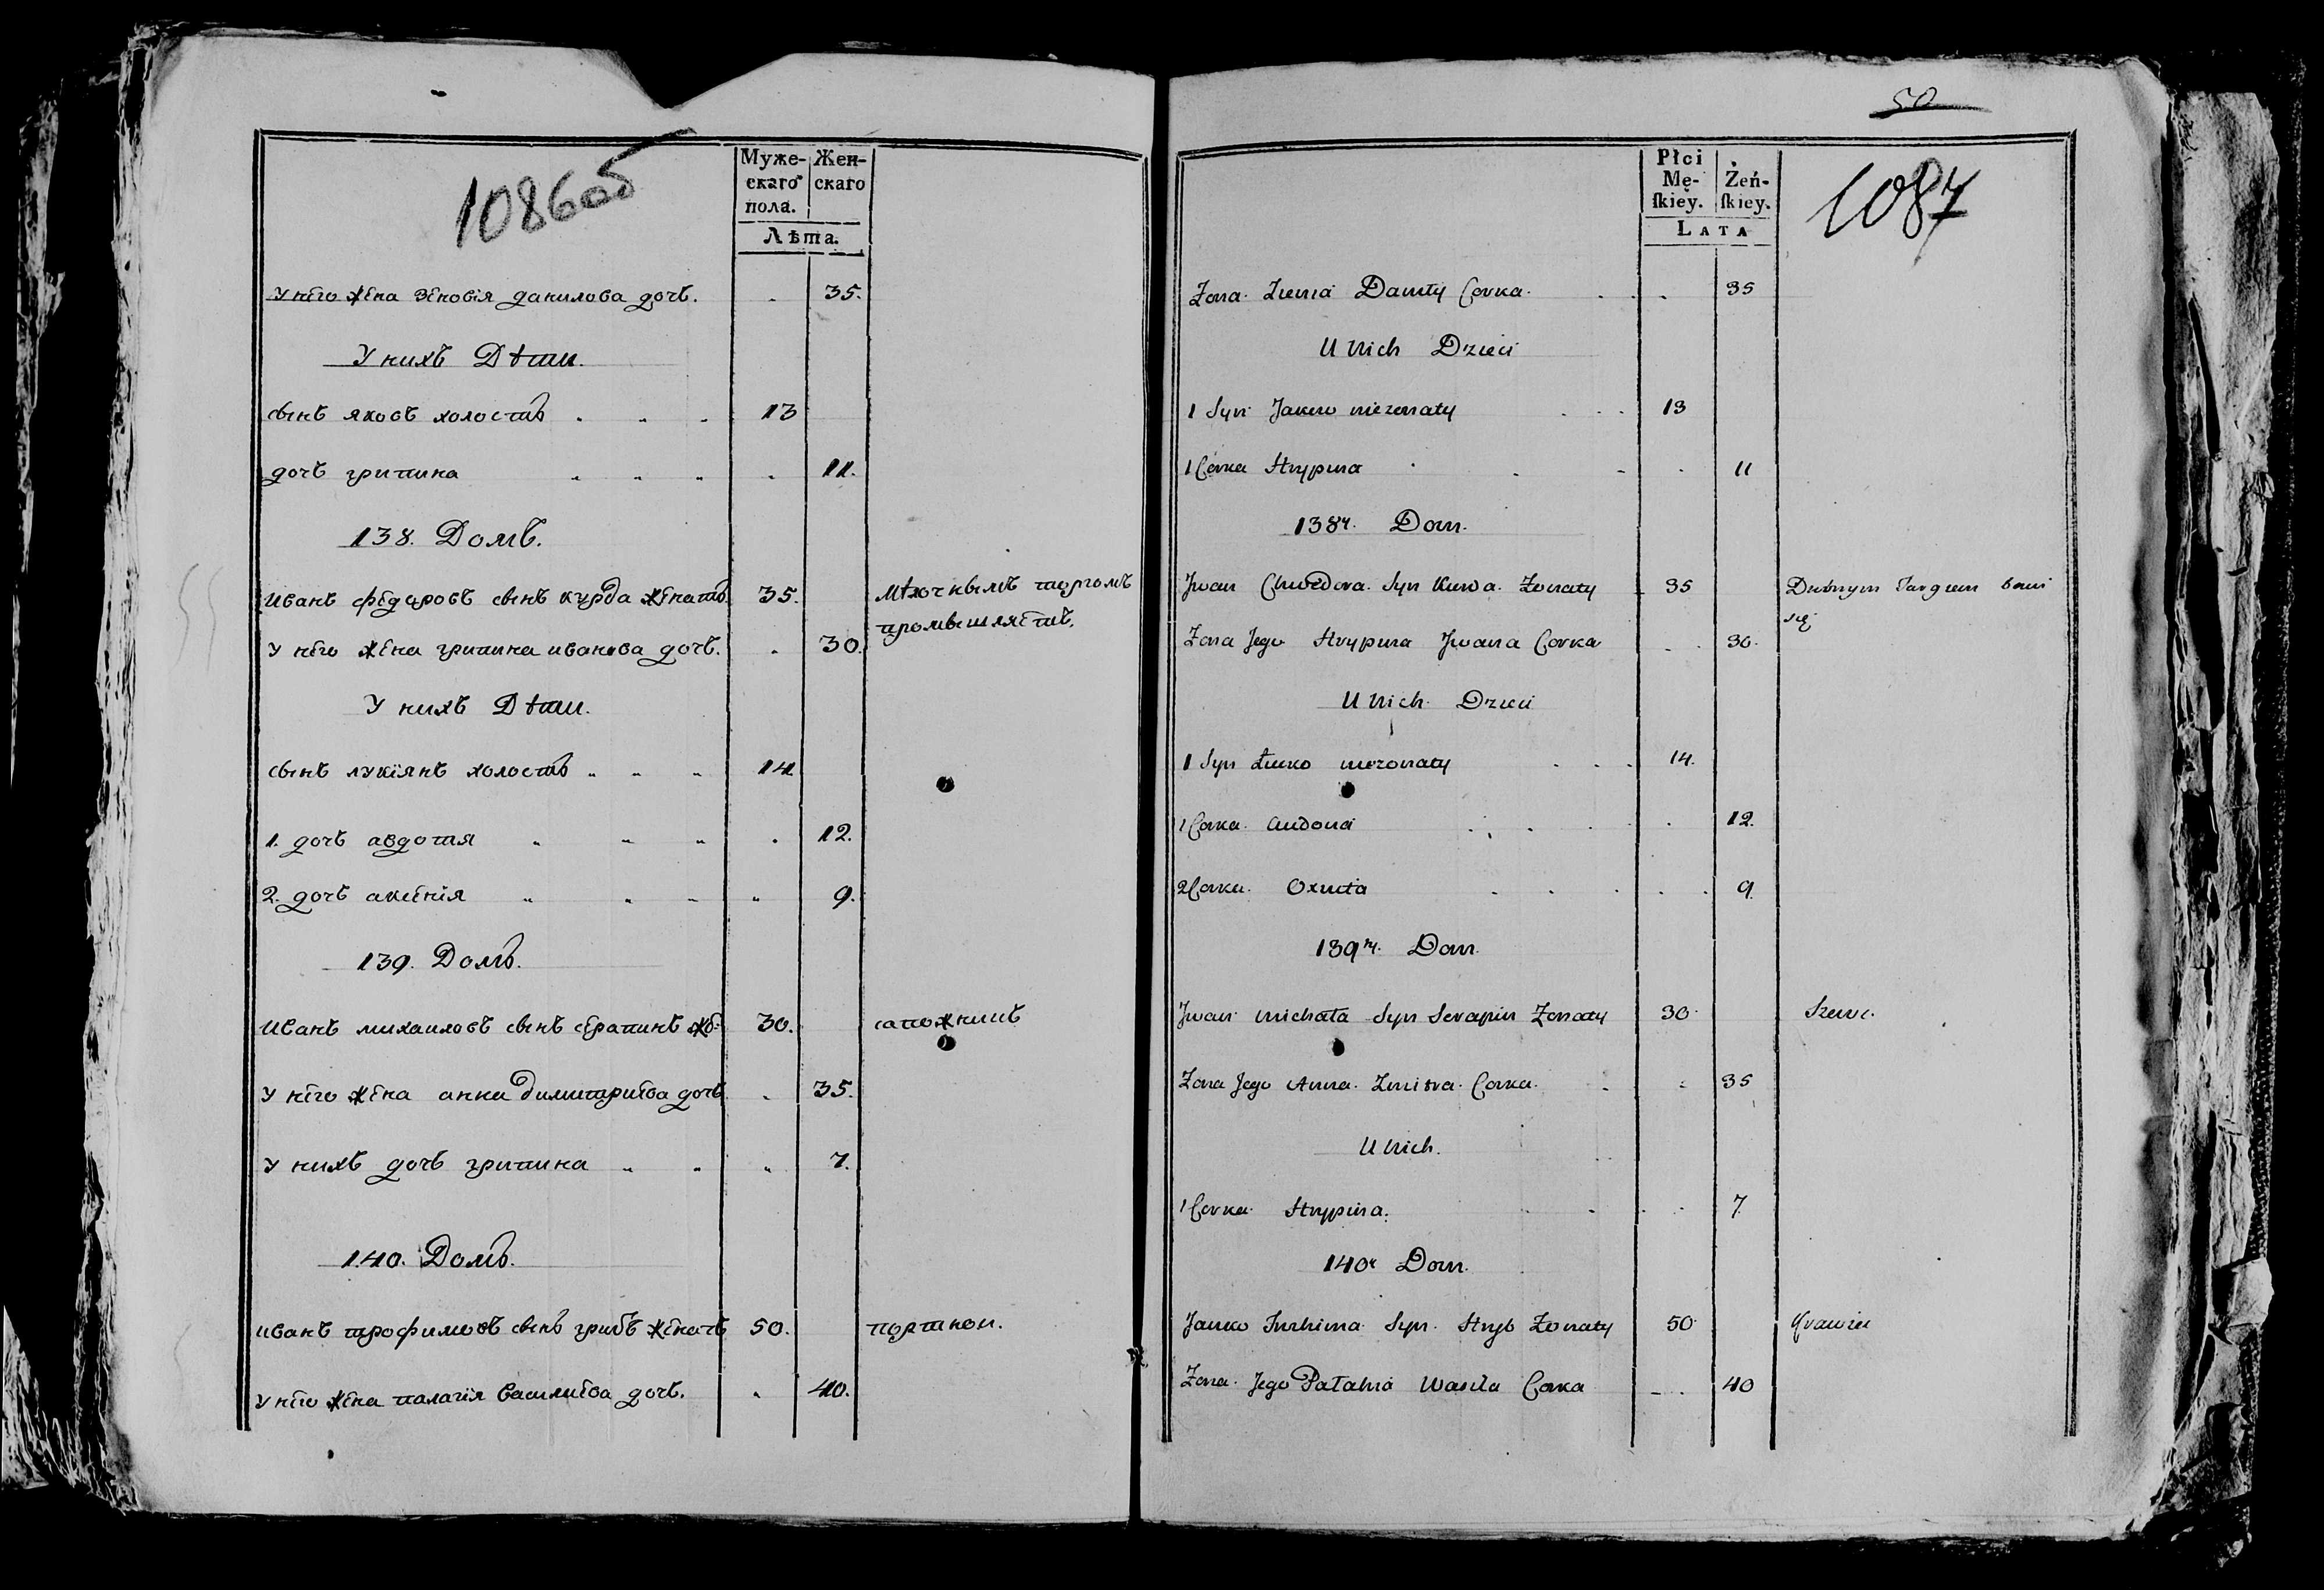 1086 об
Муже-
скаго
пола.
Жен-
скаго
Лѣта.
У него жена Зеновія данилова дочь. . 35.
У нихъ Дѣти.
сынъ яковъ холостъ . . . 13
дочь грипина " " " . 11.
138. Домъ.
Иванъ федоровъ сынъ курда женатъ 35. Мѣлочнымъ торгомъ
промышляетъ.
У него жена грипина иванова дочь. . 30.
У нихъ Дѣти.
сынъ лукіянъ холостъ " " " 14
1. дочь авдотія " " " . 12.
2. дочь аксенія " " " " 9.
139. Домъ.
Иванъ михаиловъ сынъ серапинъ 30. сапожникъ
У него жена анна димитриева дочь . 35.
У нихъ дочь грипина " " " 7.
140. Домъ.
иванъ трофимовъ сынъ грибъ женатъ 50. портнои.
У него жена палагія василиева дочь. . 40.
50
1087
Płci
Mę-
ſkiey.
Żeń-
ſkiey.
LATA
Zona Zienia Daniły Corka . . . 35
U Nich Dzieci
1 Syn Jakow niezonaty . . . 13
1 Corka Hrypina . . - . 11
138y. Dom.
Jwan Chwedora Syn Kurda Zonaty 35 Drobnym Targiem bawi
się
Zona Jego Hrypina Jwana Corka . . 30.
U Nich Dzieci
1 Syn Łucko niezonaty . . . 14.
1 Corka Audocia . . . . . 12.
2 Corka Oxiuta . . . . . 9.
139y. Dom.
Jwan Michała Syn Serapin Zonaty 30. Szewc.
Zona Jego Anna Zmitra Corka . . 35
U Nich.
1 Corka Hrypina . . . . 7
140y Dom.
Janko Trochima Syn Hryb Zonaty 50. Krawiec
Zona Jego Pałahia Wasila Corka . . 40